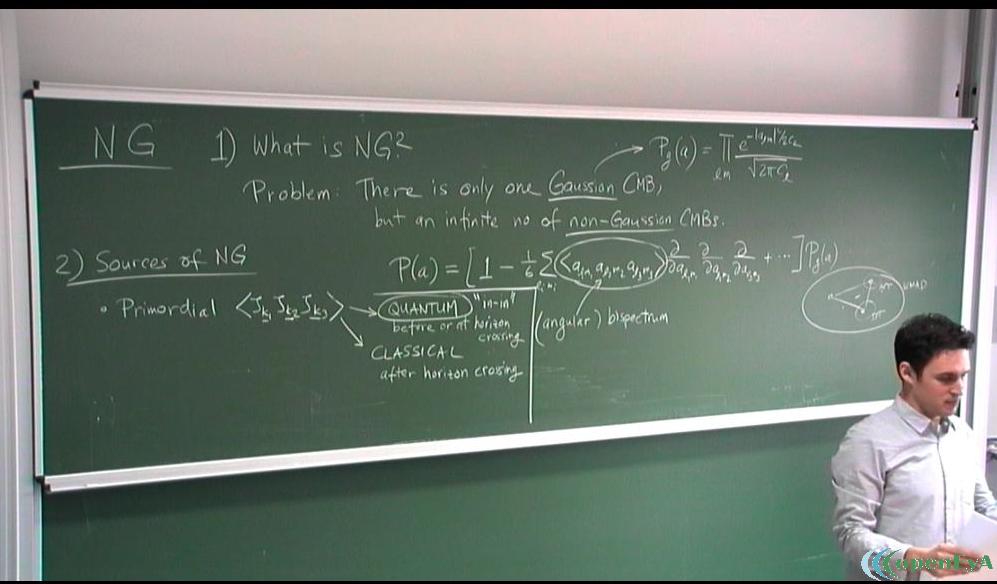 NG 1) What is NG?
P_g(a) = ∏_{lm} e^{-|a_{lm}|²/2C_l} / √(2πC_l)
Problem: There is only one Gaussian CMB,
but an infinite no of non-Gaussian CMBs.
2) Sources of NG
P(a) = [1 - 1/6 Σ_{l_i m_i} ⟨a_{l_1m_1} a_{l_2m_2} a_{l_3m_3}⟩ ∂/∂a_{l_1m_1} ∂/∂a_{l_2m_2} ∂/∂a_{l_3m_3} + ...] P_g(a)
• Primordial ⟨ζ_{k1} ζ_{k2} ζ_{k3}⟩ → QUANTUM "in-in"
before or at horizon
crossing
(angular) bispectrum
CLASSICAL
after horizon crossing
WMAP
openEyA